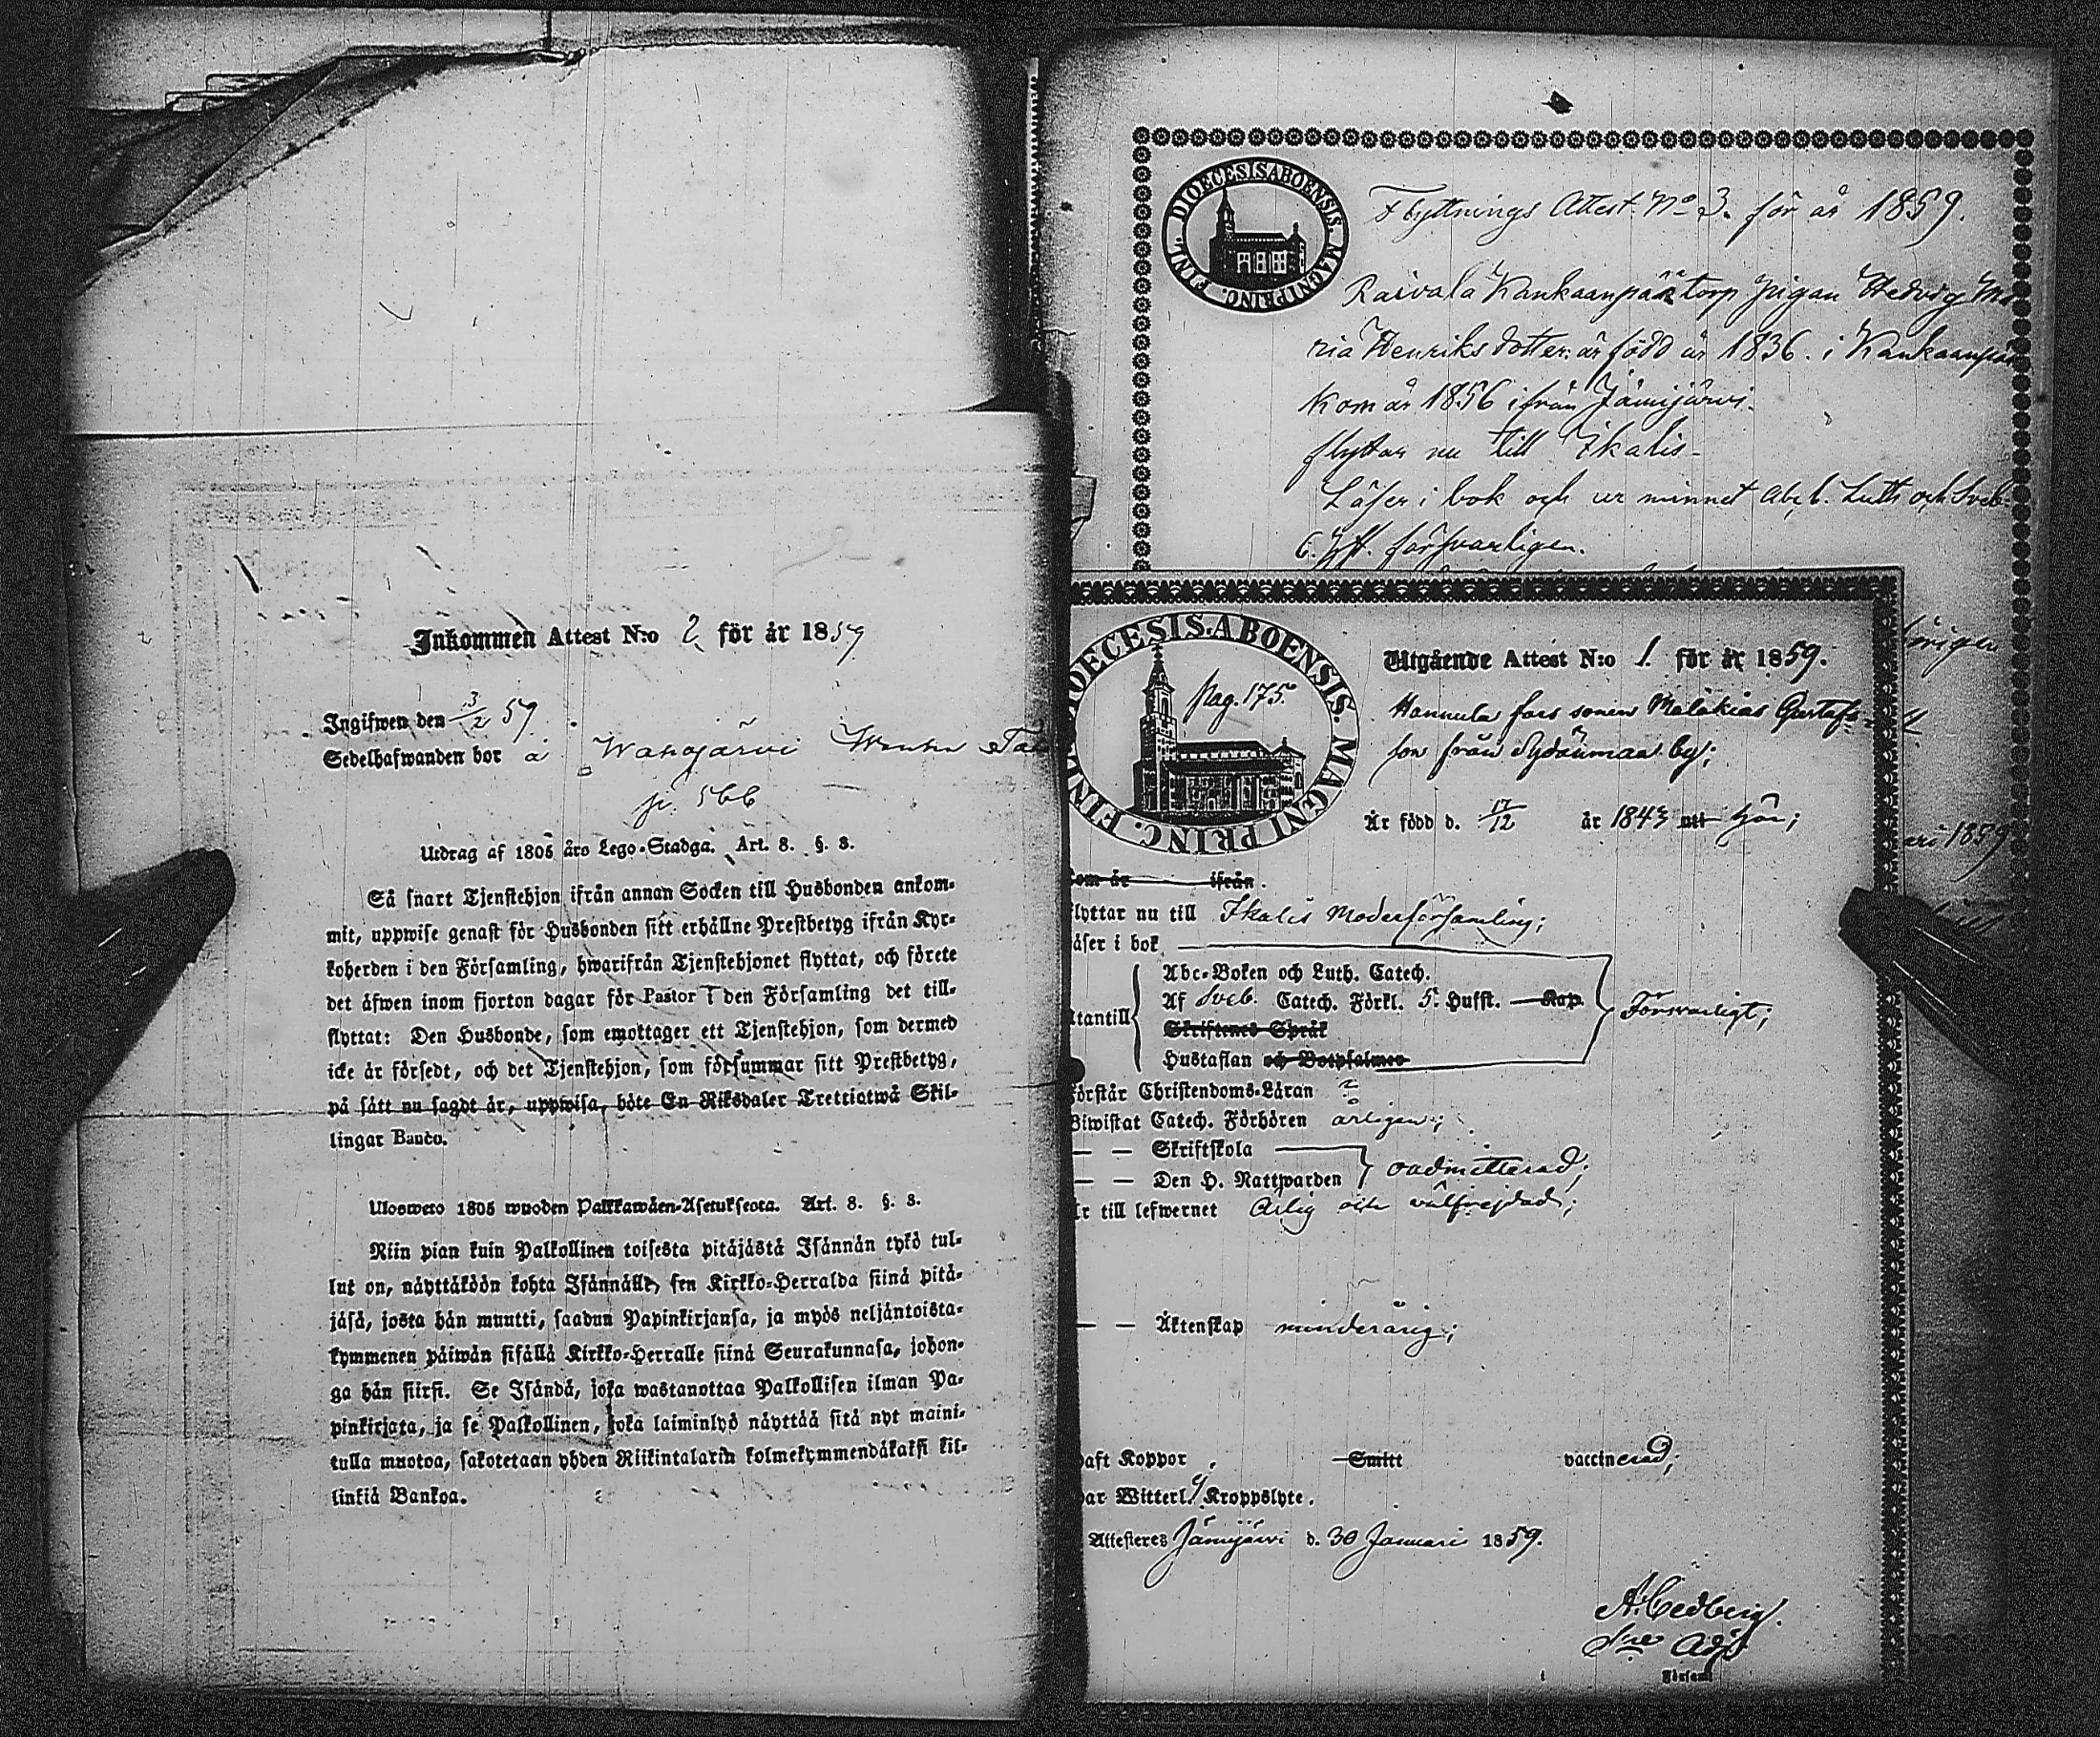 Inkommen Attest N:o 2 för år 1859
Ingifwen den 3/2 59.
Sedelhafwanden bor å Wahojärvi
p. 566
Utdrag af 1805 års Lego-Stadga. Art. 8. §. 8.
Så snart Tjenstehjon ifrån annan Socken till Husbonden ankom-
mit, uppwise genast för Husbonden sitt erhållne Prestbetyg ifrån Kyr-
koherden i den Församling, hwarifrån Tjenstehjonet flyttat, och förete
det äfwen inom fjorton dagar för Pastor i den Församling det till-
flyttat: Den Husbonde, som emottager ett Tjenstehjon, som dermed
icke är försedt, och det Tjenstehjon, som försummar sitt Prestbetyg,
på sätt nu sagdt är, uppwisa, böte En Riksdaler Trettiotwå Skil-
lingar Banco.
Ulosweto 1805 wuoden Palkkawäen-Asetuksesta. Art. 8. §. 8.
Niin pian kuin Palkollinen toisesta pitäjästä Isännän tykö tul-
lut on, näyttäköön kohta Isännälle, sen Kirkko-Herralda siinä pitä-
jäsä, josta hän muutti, saadun Papinkirjansa, ja myös neljäntoista-
kymmenen päiwän sisällä Kirkko-Herralle siinä Seurakunnasa, johon-
ga hän siirsi. Se Isändä, joka wastanottaa Palkollisen ilman Pa-
pinkirjata, ja se Palkollinen, joka laiminlyö näyttää sitä nyt maini-
tulla muotoa, sakotetaan yhden Riikintalarin kolmekymmendäkaksi kil-
linkiä Bankoa.
DIOECESIS ABOENSIS. MAGNI PRINC. FINL.
Flyttnings Attest. No 3. för år 1859.
Raivala Kankaanpää torp Pigan Hedvig Ma
ria Henriksdotter: är född år 1836. i Kankaanpää
Kom år 1856 ifrån Jämijärvi.
flyttar nu till Ikalis-
Läser i bok och ur minnet Abc b. Luth och Sveb.
6. Hft. försvarligen.
DIOECESIS ABOENSIS. MAGNI PRINC. FINL
pag. 175.
Utgående Attest N:o 1. för år 1859.
Hannula fars sonen Malakias Gustafs-
son från Sydänmaa by;
Är född d. 17/12 år 1843 här;
Kom år ifrån.
flyttar nu till Ikalis Moderförsamling;
läser i bok
Abc-Boken och Luth. Catech.
Af Sveb. Catech. Förkl. 5. Hufst. Kap.
utantill Försvarligt;
Skriftenes Språk
Hustaflan och Botpsalmer
Förstår Christendoms-Läran
Biwistat Catech. Förhören årligen;
— — Skriftskola
— — Den H. Nattwarden oadmitterad;
är till lefwernet Ärlig och välfrejdad;
— — Äktenskap minderårig;
haft Koppor Smitt vaccinerad;
har Witterl. Kroppslyte.
Attesteres Jämijärvi d. 30 Januari 1859.
A. Cedberg.